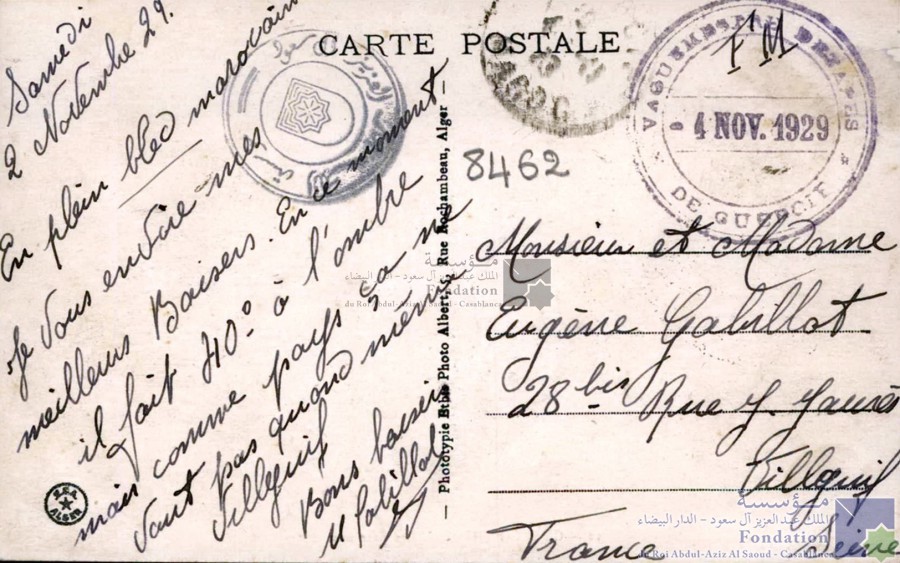 CARTE POSTALE
Samedi
2 Novembre 29.
En plein bled marocain
Je vous envoie mes
meilleurs Baisers. En ce moment
il fait 40° à l'ombre
mais comme pays ça ne
vaut pas quand même
Villejuif
Bons baisers
Phototypie Photo Albert, Rue Rochambeau, Alger
E.P.A.
ALGER
8462
FM
VAGUEMESTRE
4 NOV. 1929
DE GUERCIF
Monsieur et Madame
Eugène Gabillot
28 bis Rue J. Jaurès
Villejuif
Seine
France
مؤسسة
الملك عبد العزيز آل سعود - الدار البيضاء
Fondation
du Roi Abdul-Aziz Al Saoud - Casablanca
مؤسسة
الملك عبد العزيز آل سعود - الدار البيضاء
Fondation
du Roi Abdul-Aziz Al Saoud - Casablanca